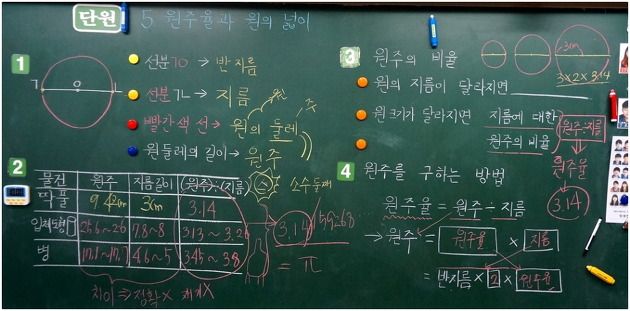 단원
5 원주율과 원의 넓이
1
ㄱ ㅇ ㄴ
선분ㄱㅇ → 반지름
선분ㄱㄴ → 지름
빨간색 선 → 원의 둘레
원둘레의 길이 → 원주
2
물건 원주 지름길이 (원주)÷(지름) 소수둘째
딱풀 9.42cm 3cm 3.14
입체도형 25.6~26 7.8~8 3.13~3.26
병 17.1~17.7 4.6~5 3.45~3.8
3.14/59263
= π
차이 ⇒ 정확X 재기X
3 원주의 비율
3cm
3×2×3.14
원의 지름이 달라지면
원크기가 달라지면 지름에 대한 원주÷지름
원주의 비율
원주율
3.14
4 원주를 구하는 방법
원주율 = 원주 ÷ 지름
→ 원주 = 원주율 × 지름
= 반지름 × 2 × 원주율